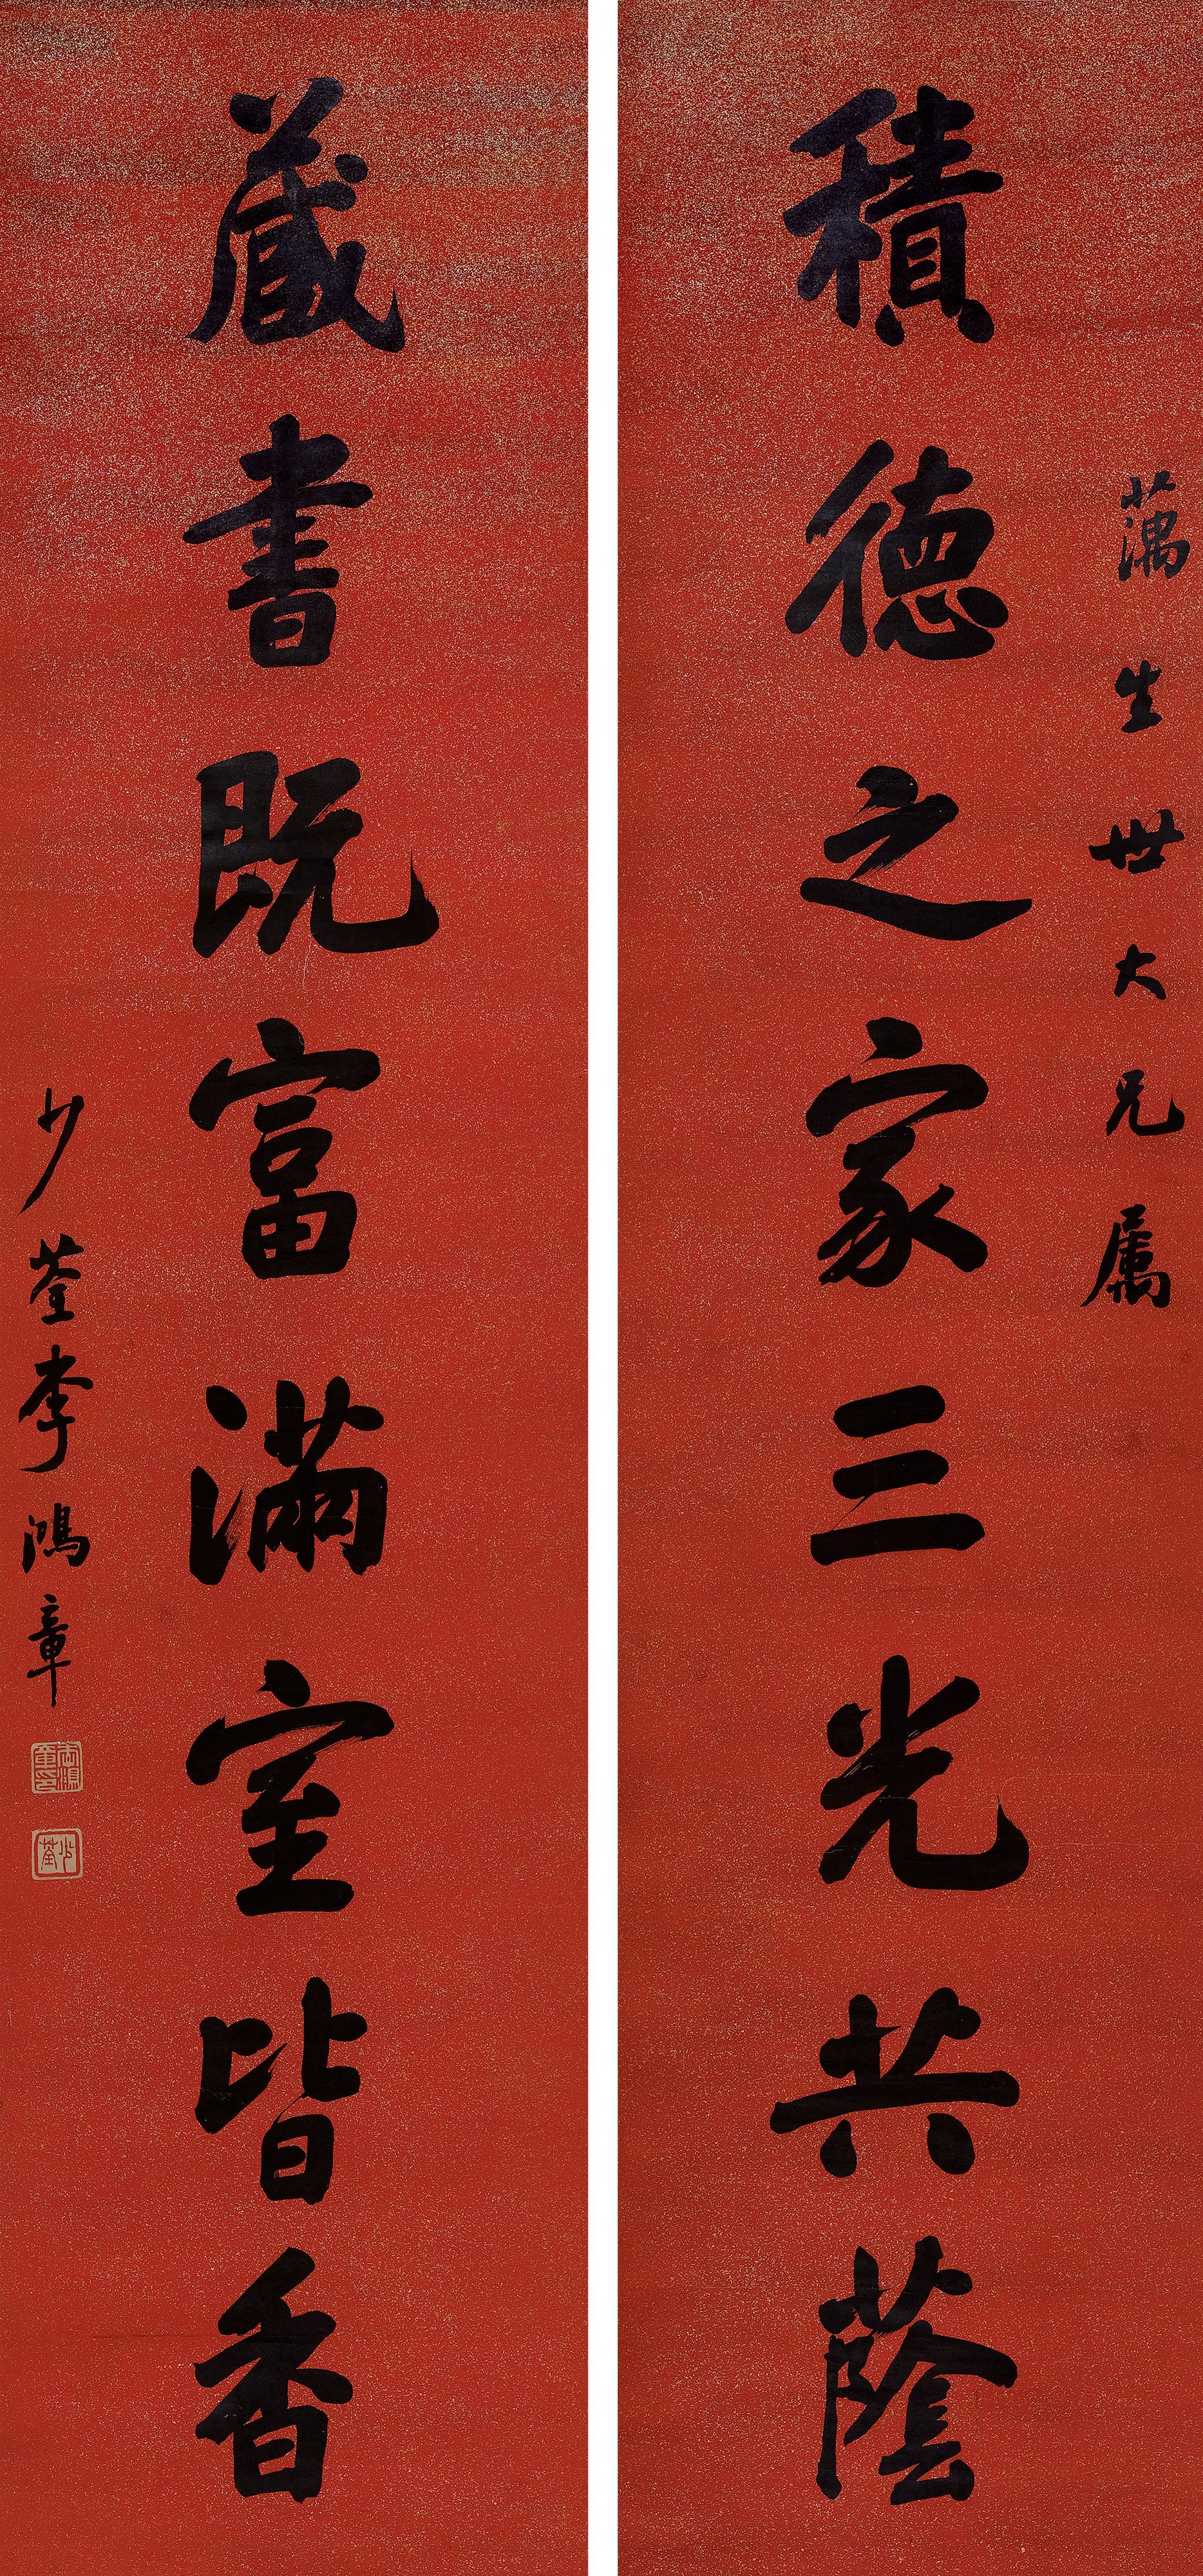 澫生世大兄属
積德之家三光共蔭
藏書既富滿室皆香
少荃李鴻章
李鴻章印
少荃